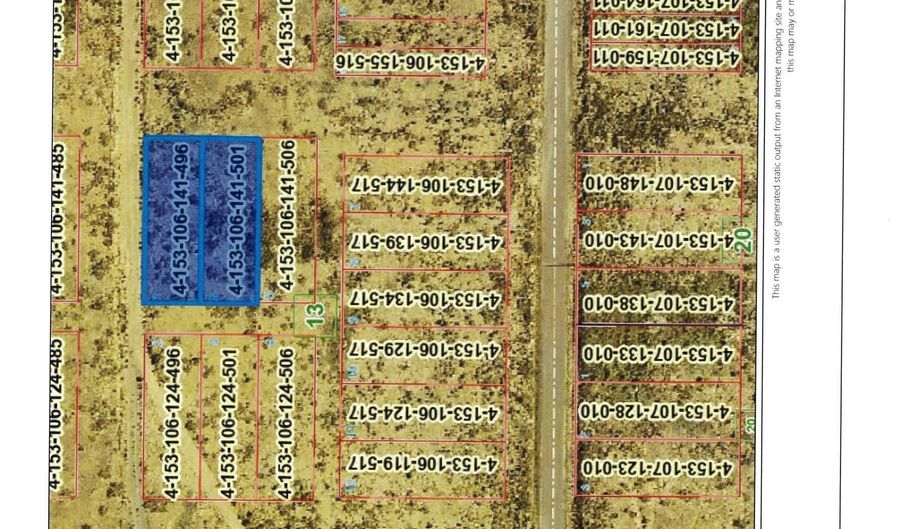 4-153-106-155-516
4-153-107-164-011
4-153-107-161-011
4-153-107-159-011
4-153-106-141-485
4-153-106-141-496
4-153-106-141-501
4-153-106-141-506
4-153-106-144-517
4-153-106-139-517
4-153-106-134-517
4-153-106-129-517
4-153-106-124-517
4-153-106-119-517
4-153-107-148-010
4-153-107-143-010
4-153-107-138-010
4-153-107-133-010
4-153-107-128-010
4-153-107-123-010
13
20
20
4-153-106-124-485
4-153-106-124-496
4-153-106-124-501
4-153-106-124-506
4-153-1
4-153-1
4-153-10
This map is a user generated static output from an Internet mapping site an
this map may or m